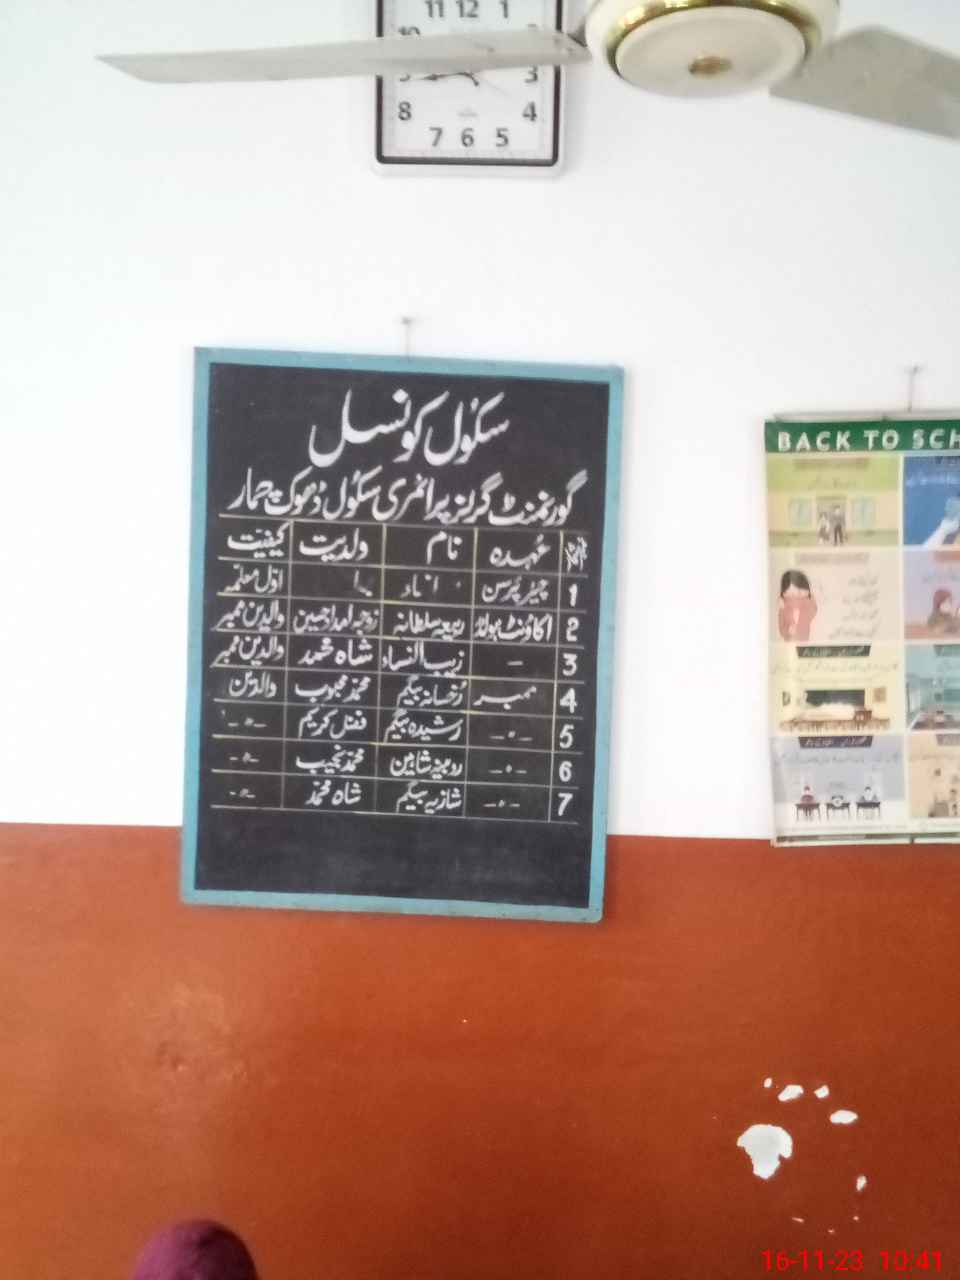 11 12 1
10
9 3
8 4
7 6 5
سکول کونسل
گورنمنٹ گرلز پرائمری سکول ڈھوک چمار
نمبرشمار عہدہ نام ولدیت کیفیت
1 چیئرپرسن اول معلمہ
2 اکاؤنٹ ہولڈر ربیعہ سلطانہ زوجہ امداد حسین والدین ممبر
3 - زیب النساء شاہ محمد والدین ممبر
4 ممبر رخسانہ بیگم محمد محبوب والدین
5 -〃- رشیدہ بیگم فضل کریم -〃-
6 -〃- روبینہ شاہین محمد نجیب -〃-
7 -〃- شازیہ بیگم شاہ محمد -〃-
BACK TO SCH
16-11-23 10:41